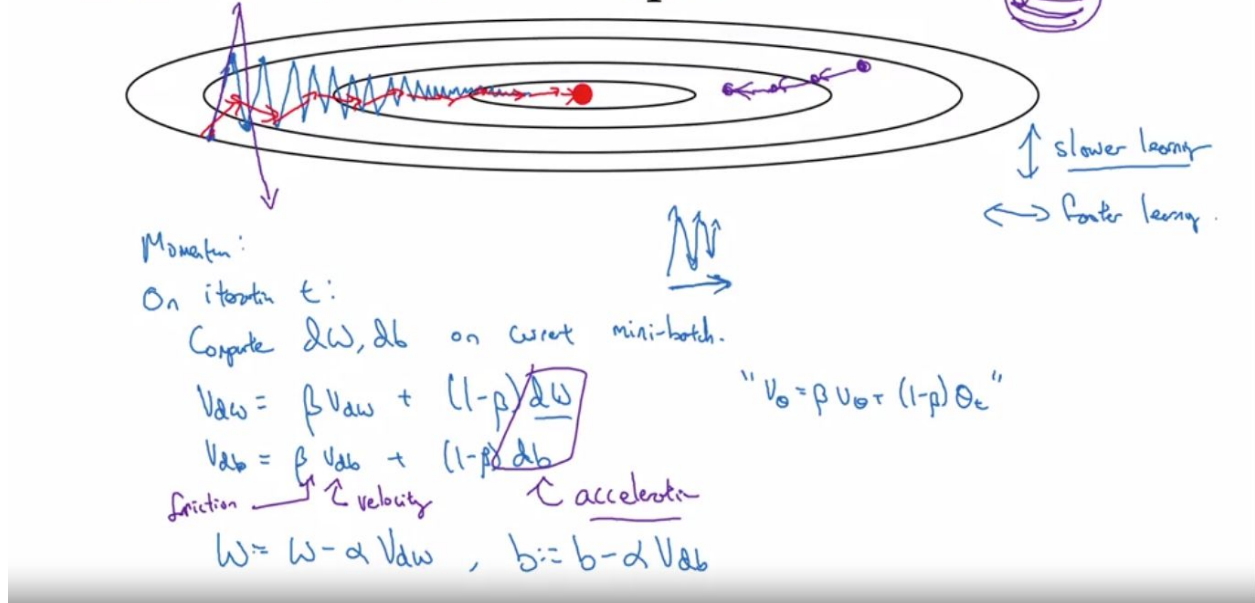 slower learning
faster learning.
Momentum:
On iteration t:
Compute dW, db on current mini-batch.
Vdw = β Vdw + (1-β) dW
"Vθ = β Vθ + (1-β) θt"
Vdb = β Vdb + (1-β) db
friction velocity acceleration
W:= W - α Vdw , b:= b - α Vdb